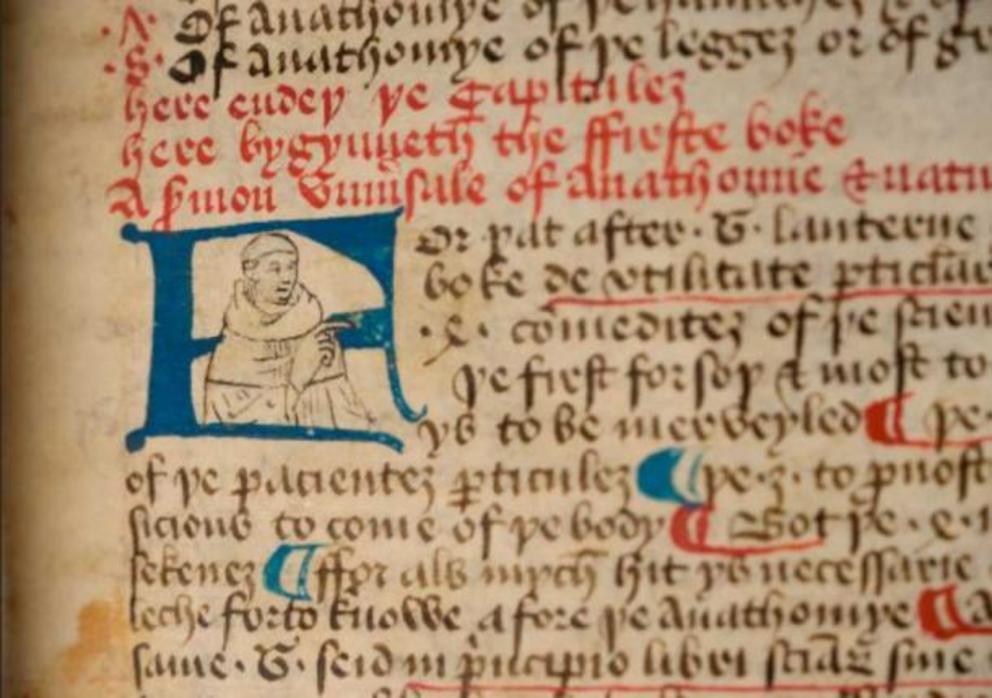 ·A· Of anathomye of þe
·8· Of anathomye of þe leggez or of
here endeþ þe Capitulez
here bygynneth the ffirste boke
A s̄mon vniu̅sale of anathomie & natu
For þat after · G · lanterne
boke de vtilitate ꝑticular
· 4 · co̅meditez of þe scien
þe first forsoþ & most to
ys to be merveyled ¶ þe
of þe pacientez ꝑticulez ¶ þe · 3 · to pnost
sicions to come of þe body ¶ Bot þe · 4 ·
sekenez ¶ ffor als mych hit ys necessarie
leche forto knowe afore þe anathomye ¶
same · G · seid in p̍ncipio libri sciaꝝ sine